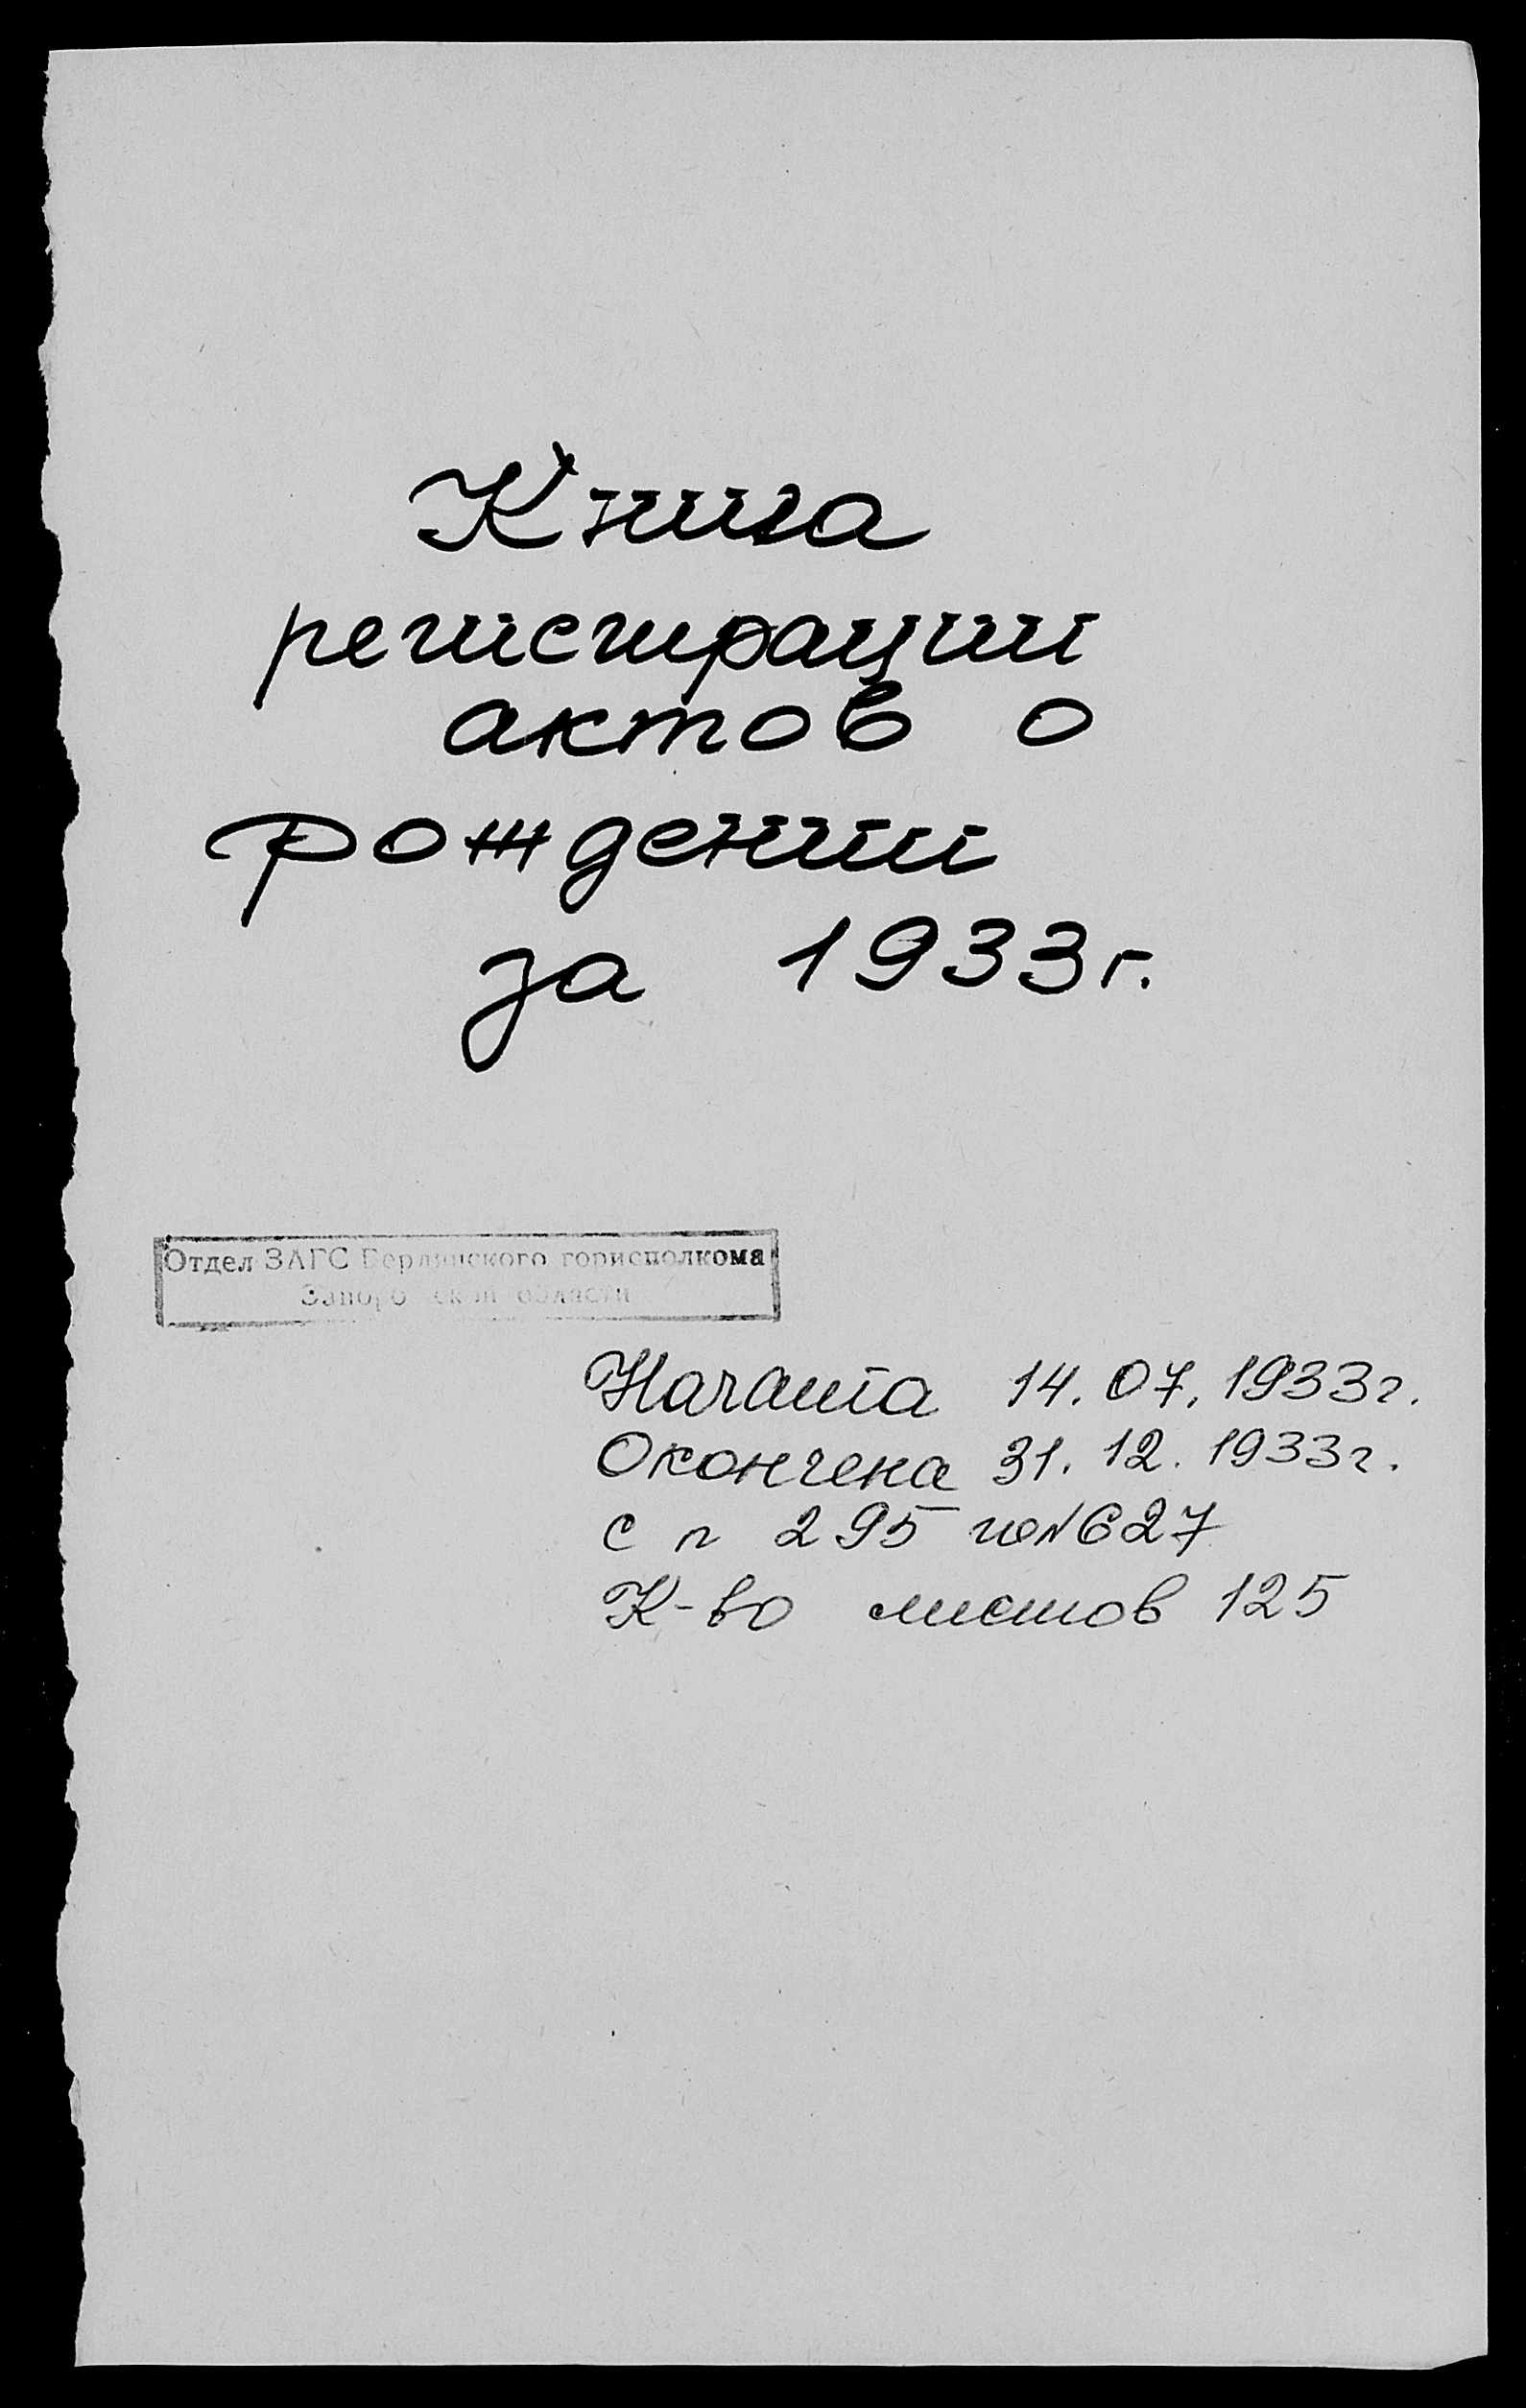 Книга
регистрации
актов о
рождении
за 1933г.
Отдел ЗАГС Бердянского горисполкома
Запорожской области
Начата 14.07.1933г.
Окончена 31.12.1933г.
с п 295 по N 627
К-во листов 125